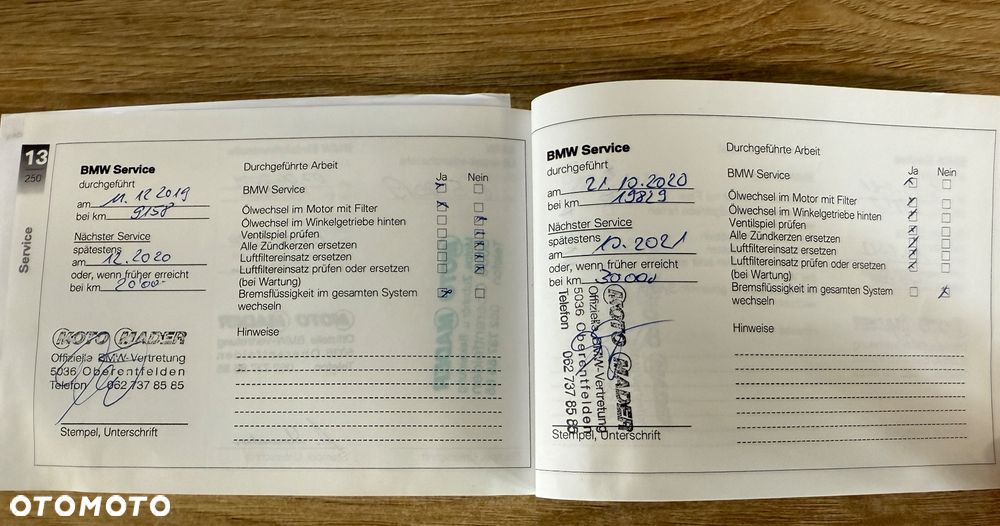 13
250
Service
BMW Service
durchgeführt
am 11.12.2019
bei km 9158
Nächster Service
spätestens
am 12.2020
oder, wenn früher erreicht
bei km 20'000
MOTO MADER
Offizielle BMW-Vertretung
5036 Oberentfelden
Telefon 062 737 85 85
Stempel, Unterschrift
Durchgeführte Arbeit
Ja Nein
BMW Service
Ölwechsel im Motor mit Filter
Ölwechsel im Winkelgetriebe hinten
Ventilspiel prüfen
Alle Zündkerzen ersetzen
Luftfiltereinsatz ersetzen
Luftfiltereinsatz prüfen oder ersetzen
(bei Wartung)
Bremsflüssigkeit im gesamten System
wechseln
Hinweise
BMW Service
durchgeführt
am 21.10.2020
bei km 19829
Nächster Service
spätestens
am 10.2021
oder, wenn früher erreicht
bei km 30000
MOTO MADER
Offizielle BMW-Vertretung
5036 Oberentfelden
Telefon 062 737 85 85
Stempel, Unterschrift
Durchgeführte Arbeit
Ja Nein
BMW Service
Ölwechsel im Motor mit Filter
Ölwechsel im Winkelgetriebe hinten
Ventilspiel prüfen
Alle Zündkerzen ersetzen
Luftfiltereinsatz ersetzen
Luftfiltereinsatz prüfen oder ersetzen
(bei Wartung)
Bremsflüssigkeit im gesamten System
wechseln
Hinweise
OTOMOTO